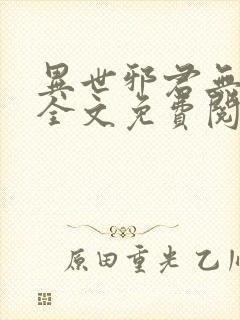 異世邪君無
全文免費閱
原田重光 乙川